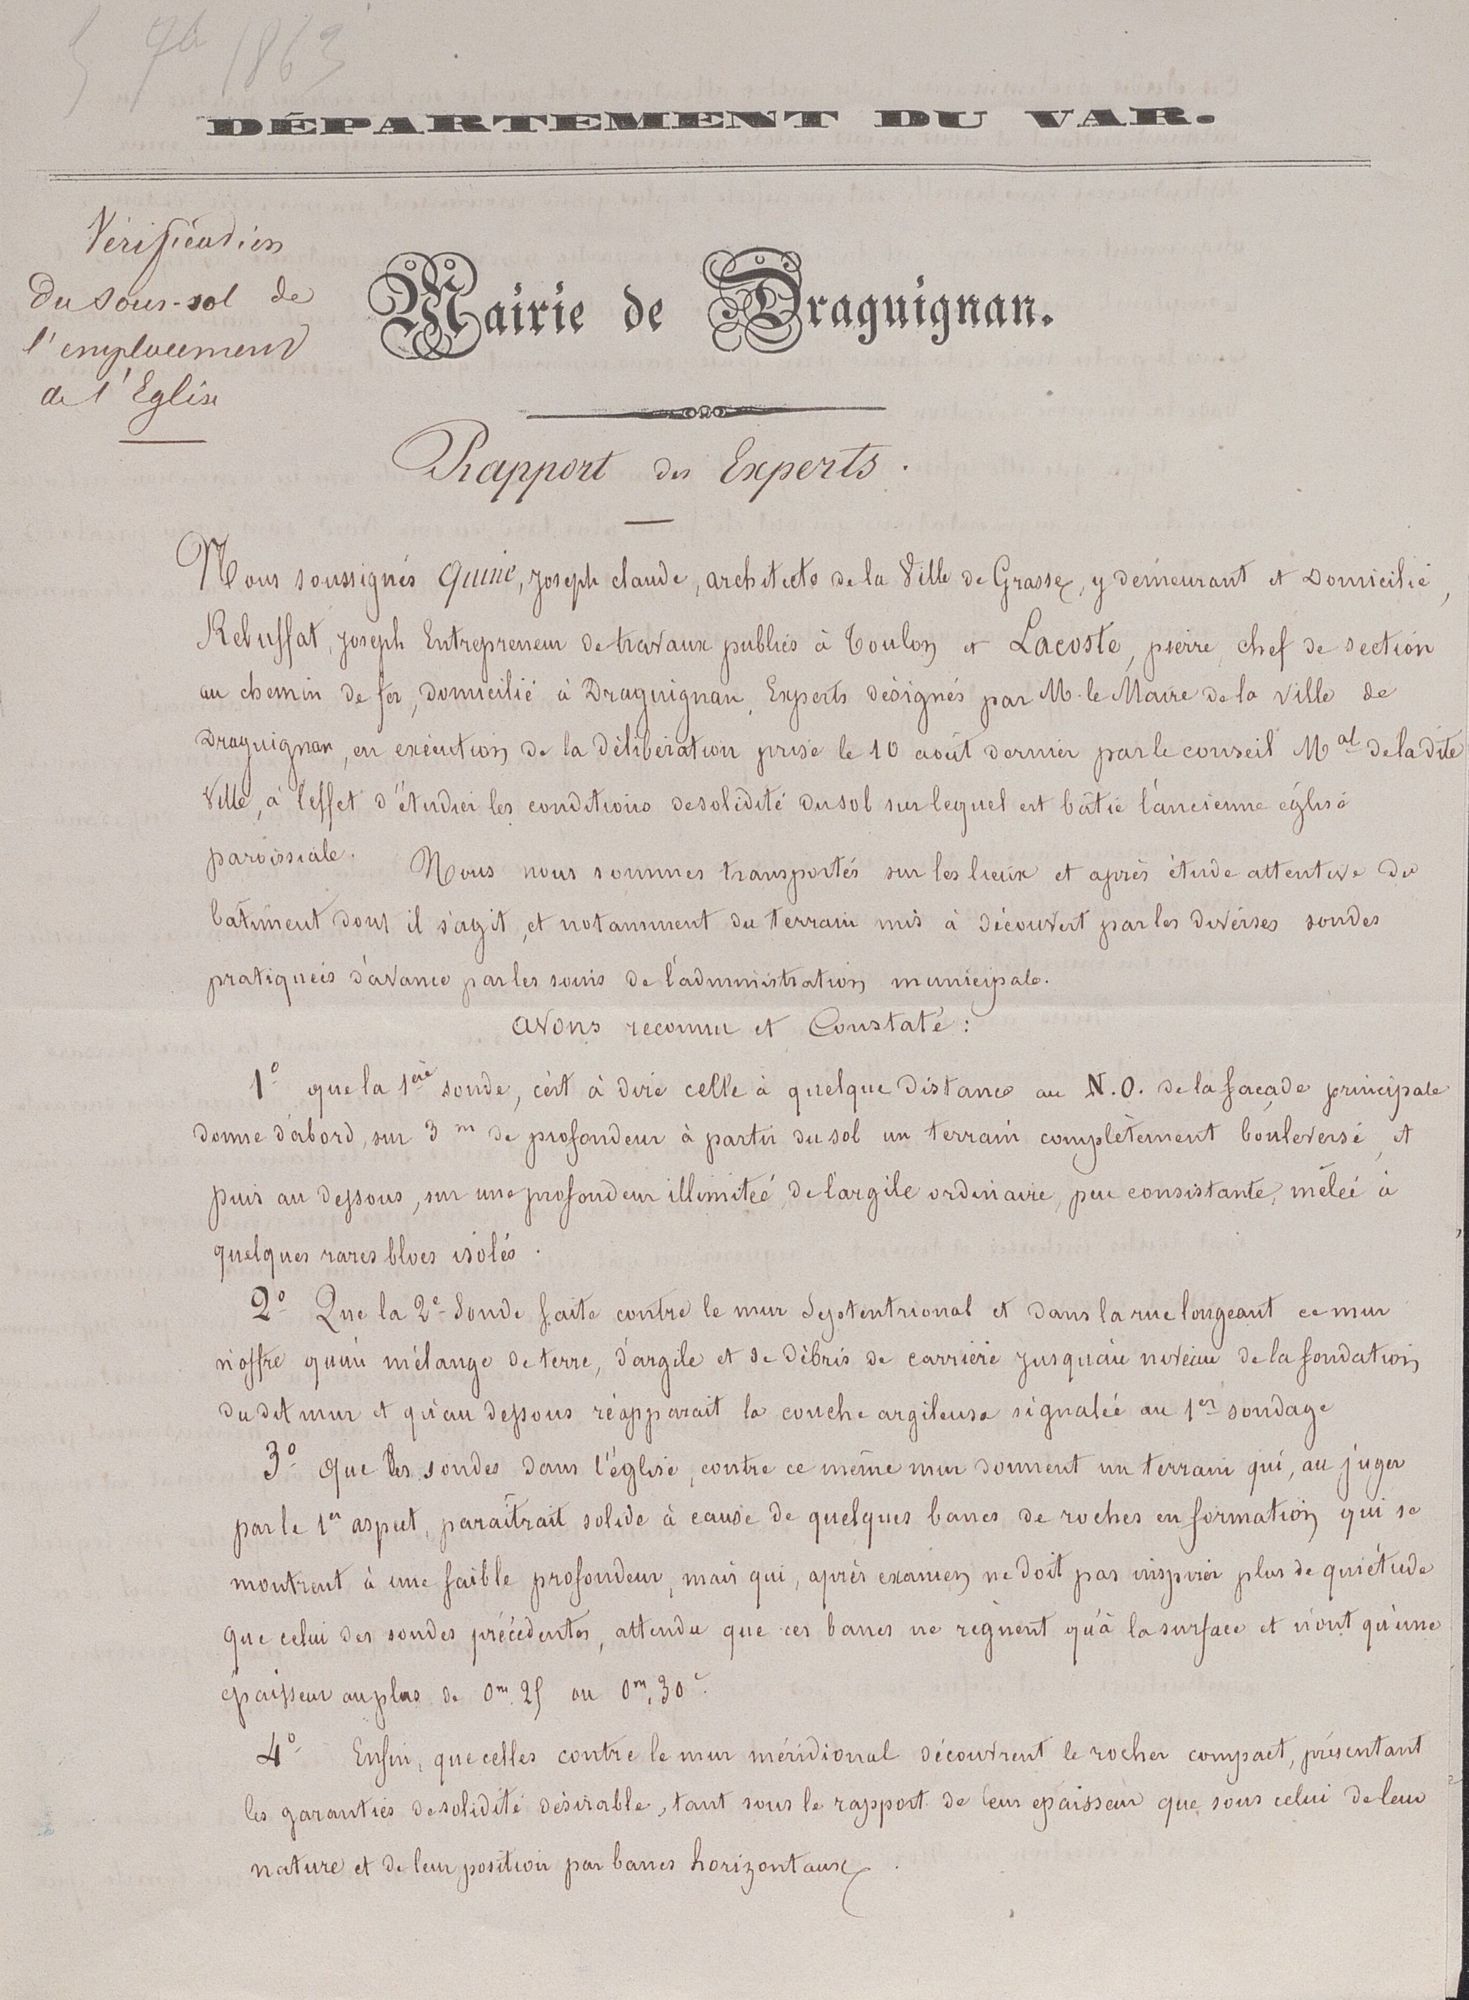 5 9b 1863
DÉPARTEMENT DU VAR.
Vérification
du sous-sol de
l'emplacement
de l'Eglise
Mairie de Draguignan.
Rapport des Experts.
Nous soussignés Quine, joseph claude, architecte de la Ville de Grasse, y demeurant et domicilié,
Rebuffat, joseph Entrepreneur de travaux publics à Toulon et Lacoste, pierre, chef de section
au chemin de fer, domicilié à Draguignan, Experts désignés par M. le Maire de la ville de
Draguignan, en exécution de la délibération prise le 10 août dernier par le conseil Mal de la dite
Ville, à l'effet d'étudier les conditions de solidité du sol sur lequel est bâtie l'ancienne église
paroissiale.
Nous nous sommes transportés sur les lieux et après étude attentive du
bâtiment dont il s'agit, et notamment du terrain mis à découvert par les diverses sondes
pratiquées d'avance par les soins de l'administration municipale.
avons reconnu et Constaté :
1° que la 1ère sonde, c'est à dire celle à quelque distance au N.O. de la façade principale
donne d'abord, sur 3 m de profondeur à partir du sol un terrain complètement bouleversé, et
puis au dessous, sur une profondeur illimitée, de l'argile ordinaire, peu consistante, mêlée à
quelques rares blocs isolés.
2° Que la 2e Sonde faite contre le mur Septentrional et dans la rue longeant ce mur
n'offre qu'un mélange de terre, d'argile et de débris de carrière jusqu'au niveau de la fondation
du dit mur et qu'au dessous réapparait la couche argileuse signalée au 1er sondage
3° Que les sondes dans l'église, contre ce même mur donnent un terrain qui, au juger
par le 1er aspect, paraîtrait solide à cause de quelques bancs de roches en formation qui se
montrent à une faible profondeur, mais qui, après examen ne doit pas inspirer plus de quiétude
que celui des sondes précédentes, attendu que ces bancs ne règnent qu'à la surface et n'ont qu'une
épaisseur au plus de 0m,25 ou 0m,30c.
4° Enfin, que celles contre le mur méridional découvrent le rocher compact, présentant
les garanties de solidité désirable, tant sous le rapport de leur épaisseur que sous celui de leur
nature et de leur position par bancs horizontaux.